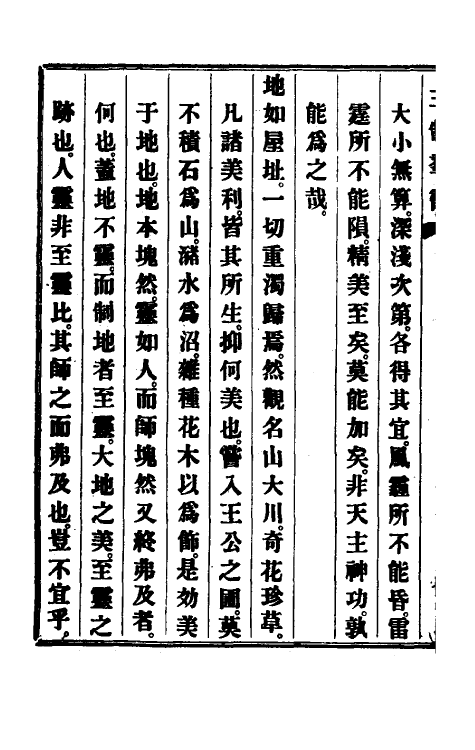 大小無算。深淺次第。各得其宜。風霾所不能昏。雷
霆所不能隕。精美至矣。莫能加矣。非天主神功。孰
能爲之哉。
地如屋址。一切重濁歸焉。然觀名山大川。奇花珍草。
凡諸美利。皆其所生。抑何美也。嘗入王公之囿。莫
不積石爲山。瀦水爲沼。雜種花木以爲飾。是効美
于地也。地本塊然。靈如人。而師塊然。又終弗及者。
何也。蓋地不靈。而制地者至靈。大地之美。至靈之
跡也。人靈非至靈比。其師之而弗及也。豈不宜乎。